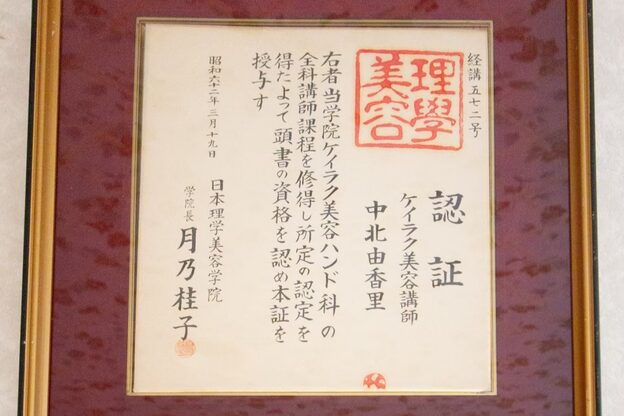 経講五七二号
理學
美容
認証
ケイラク美容講師
中北由香里
右者当学院ケイラク美容ハンド科の
全科講師課程を修得し所定の認定を
得たよって頭書の資格を認め本証を
授与す
昭和六十二年三月十九日
日本理学美容学院
学院長 月乃桂子